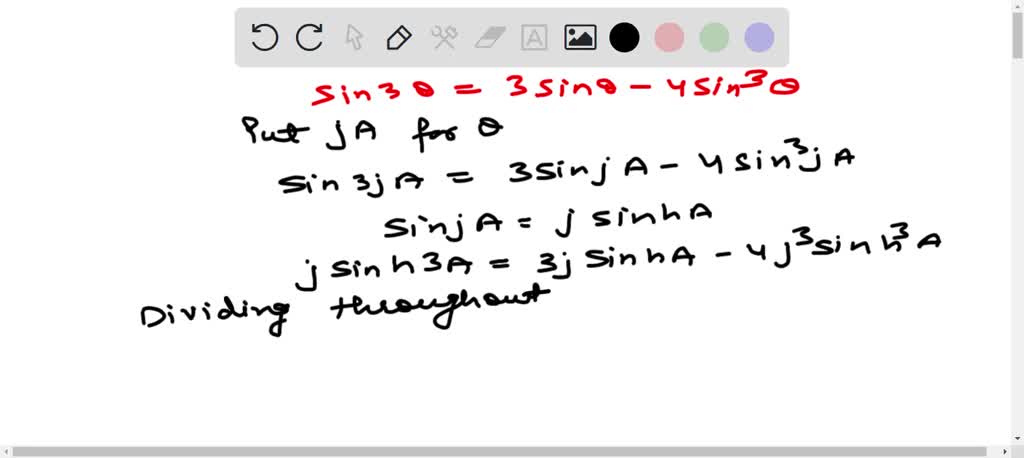 A
sin3θ = 3sinθ - 4sin³θ
Put jA for θ
sin3jA = 3sinjA - 4sin³jA
sinjA = j sinhA
j sinh3A = 3j sinhA - 4j³sinh³A
Dividing throughout